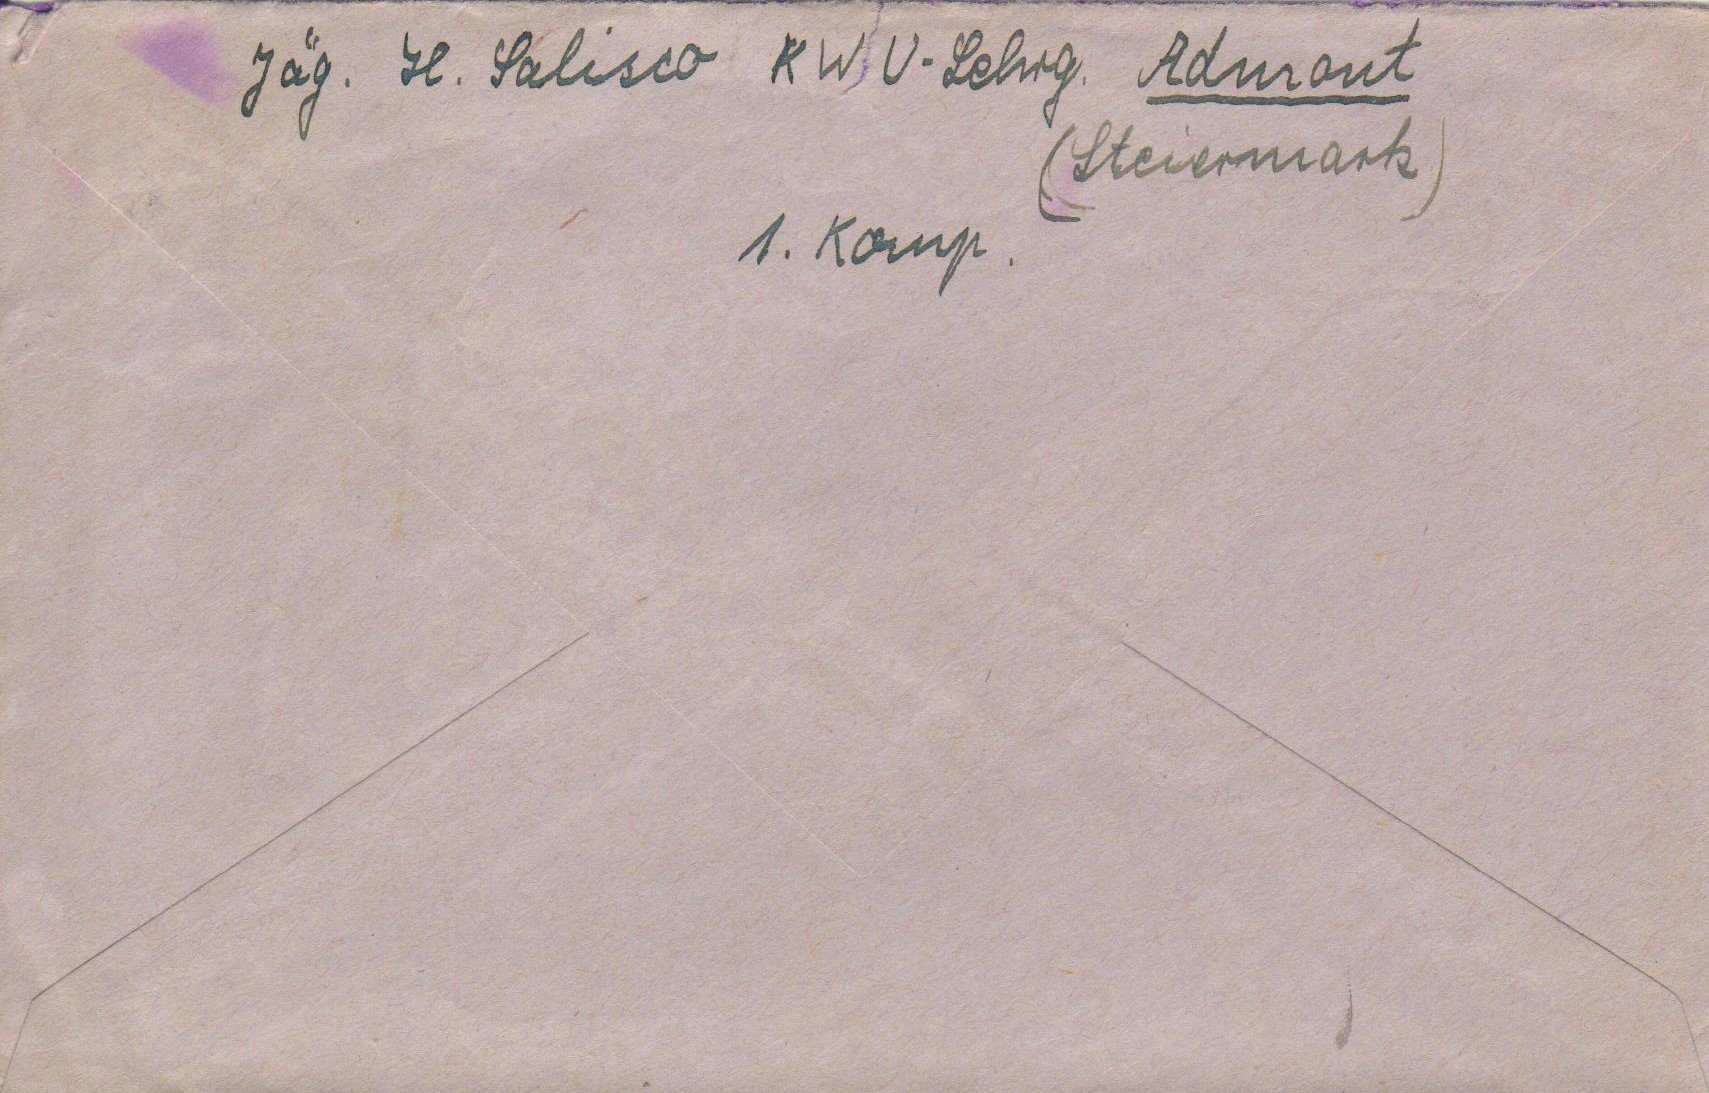 Jäg. H. Salisco KWU-Lehrg. Admont
(Steiermark)
1. Komp.